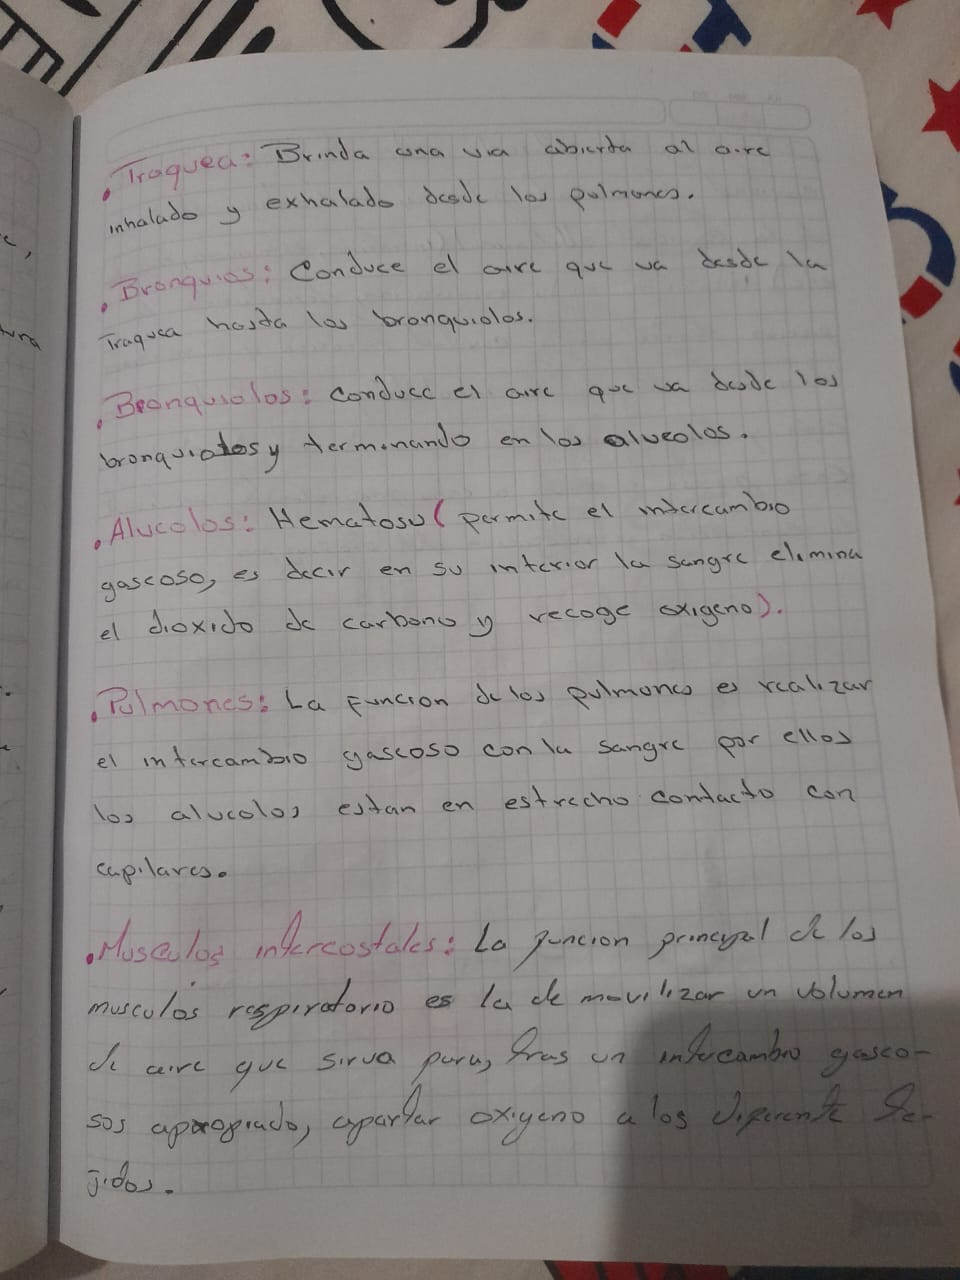 . Traquea: Brinda una via abierta al aire
inhalado y exhalado desde los pulmones.
. Bronquios: Conduce el aire que va desde la
Traquea hasta los bronquiolos.
. Bronquiolos: Conduce el aire que va desde los
bronquiolos y terminando en los alveolos.
. Alveolos: Hematosu (permite el intercambio
gascoso, es decir en su interior la sangre elimina
el dioxido de carbono y recoge oxigeno).
. Pulmones: La Funcion de los pulmones es realizar
el intercambio gascoso con la sangre por ellos
los alveolos estan en estrecho contacto con
capilares.
. Musculos intercostales: La funcion principal de los
musculos respiratorio es la de movilizar un volumen
de aire que sirva para, tras un intercambio gasco-
sos apropiado, apartar oxigeno a los diferente te-
jidos.
ura